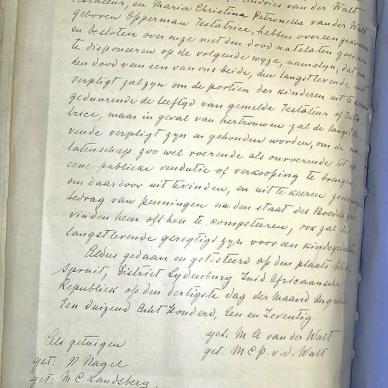 Andries van der Walt
Testateur, en Maria Christina Petronella van der Walt
geboren Opperman Testatrice, hebben overeengekomen
en besloten over onze met den dood natelaten goederen
te disponeren op de volgende wyze, namelyk, dat na
den dood van een van ons beide, den langstlevende niet
verpligt zal zyn om de portien der kinderen uit te keeren
gedurende de leeftyd van gemelde Testateur of Testa
trice, maar in geval van hertrouwen zal de langstle
vende verpligt zyn en gehouden worden, om de na
latenschap zoo wel roerende als onroerende tot op
eene publieke vendutie of verkooping te brengen
om daardoor uit te vinden, en uit te keeren zoodanig
bedrag van penningen na den staat des Boedels zal
vinden hem of hen te competeeren, ook zal de
langstlevende geregtigd zyn voor een kindsgedeelte
Aldus gedaan en getesteerd op den plaats
Spruit, District Lydenburg Zuid Afrikaansche
Republiek op den dertigste dag der maand
Een duizend Acht Honderd, Een en Zeventig
Als getuigen
get: M A van der Walt
get: P Nagel
get. M C P. v. d. Walt
get: M C Landsberg.